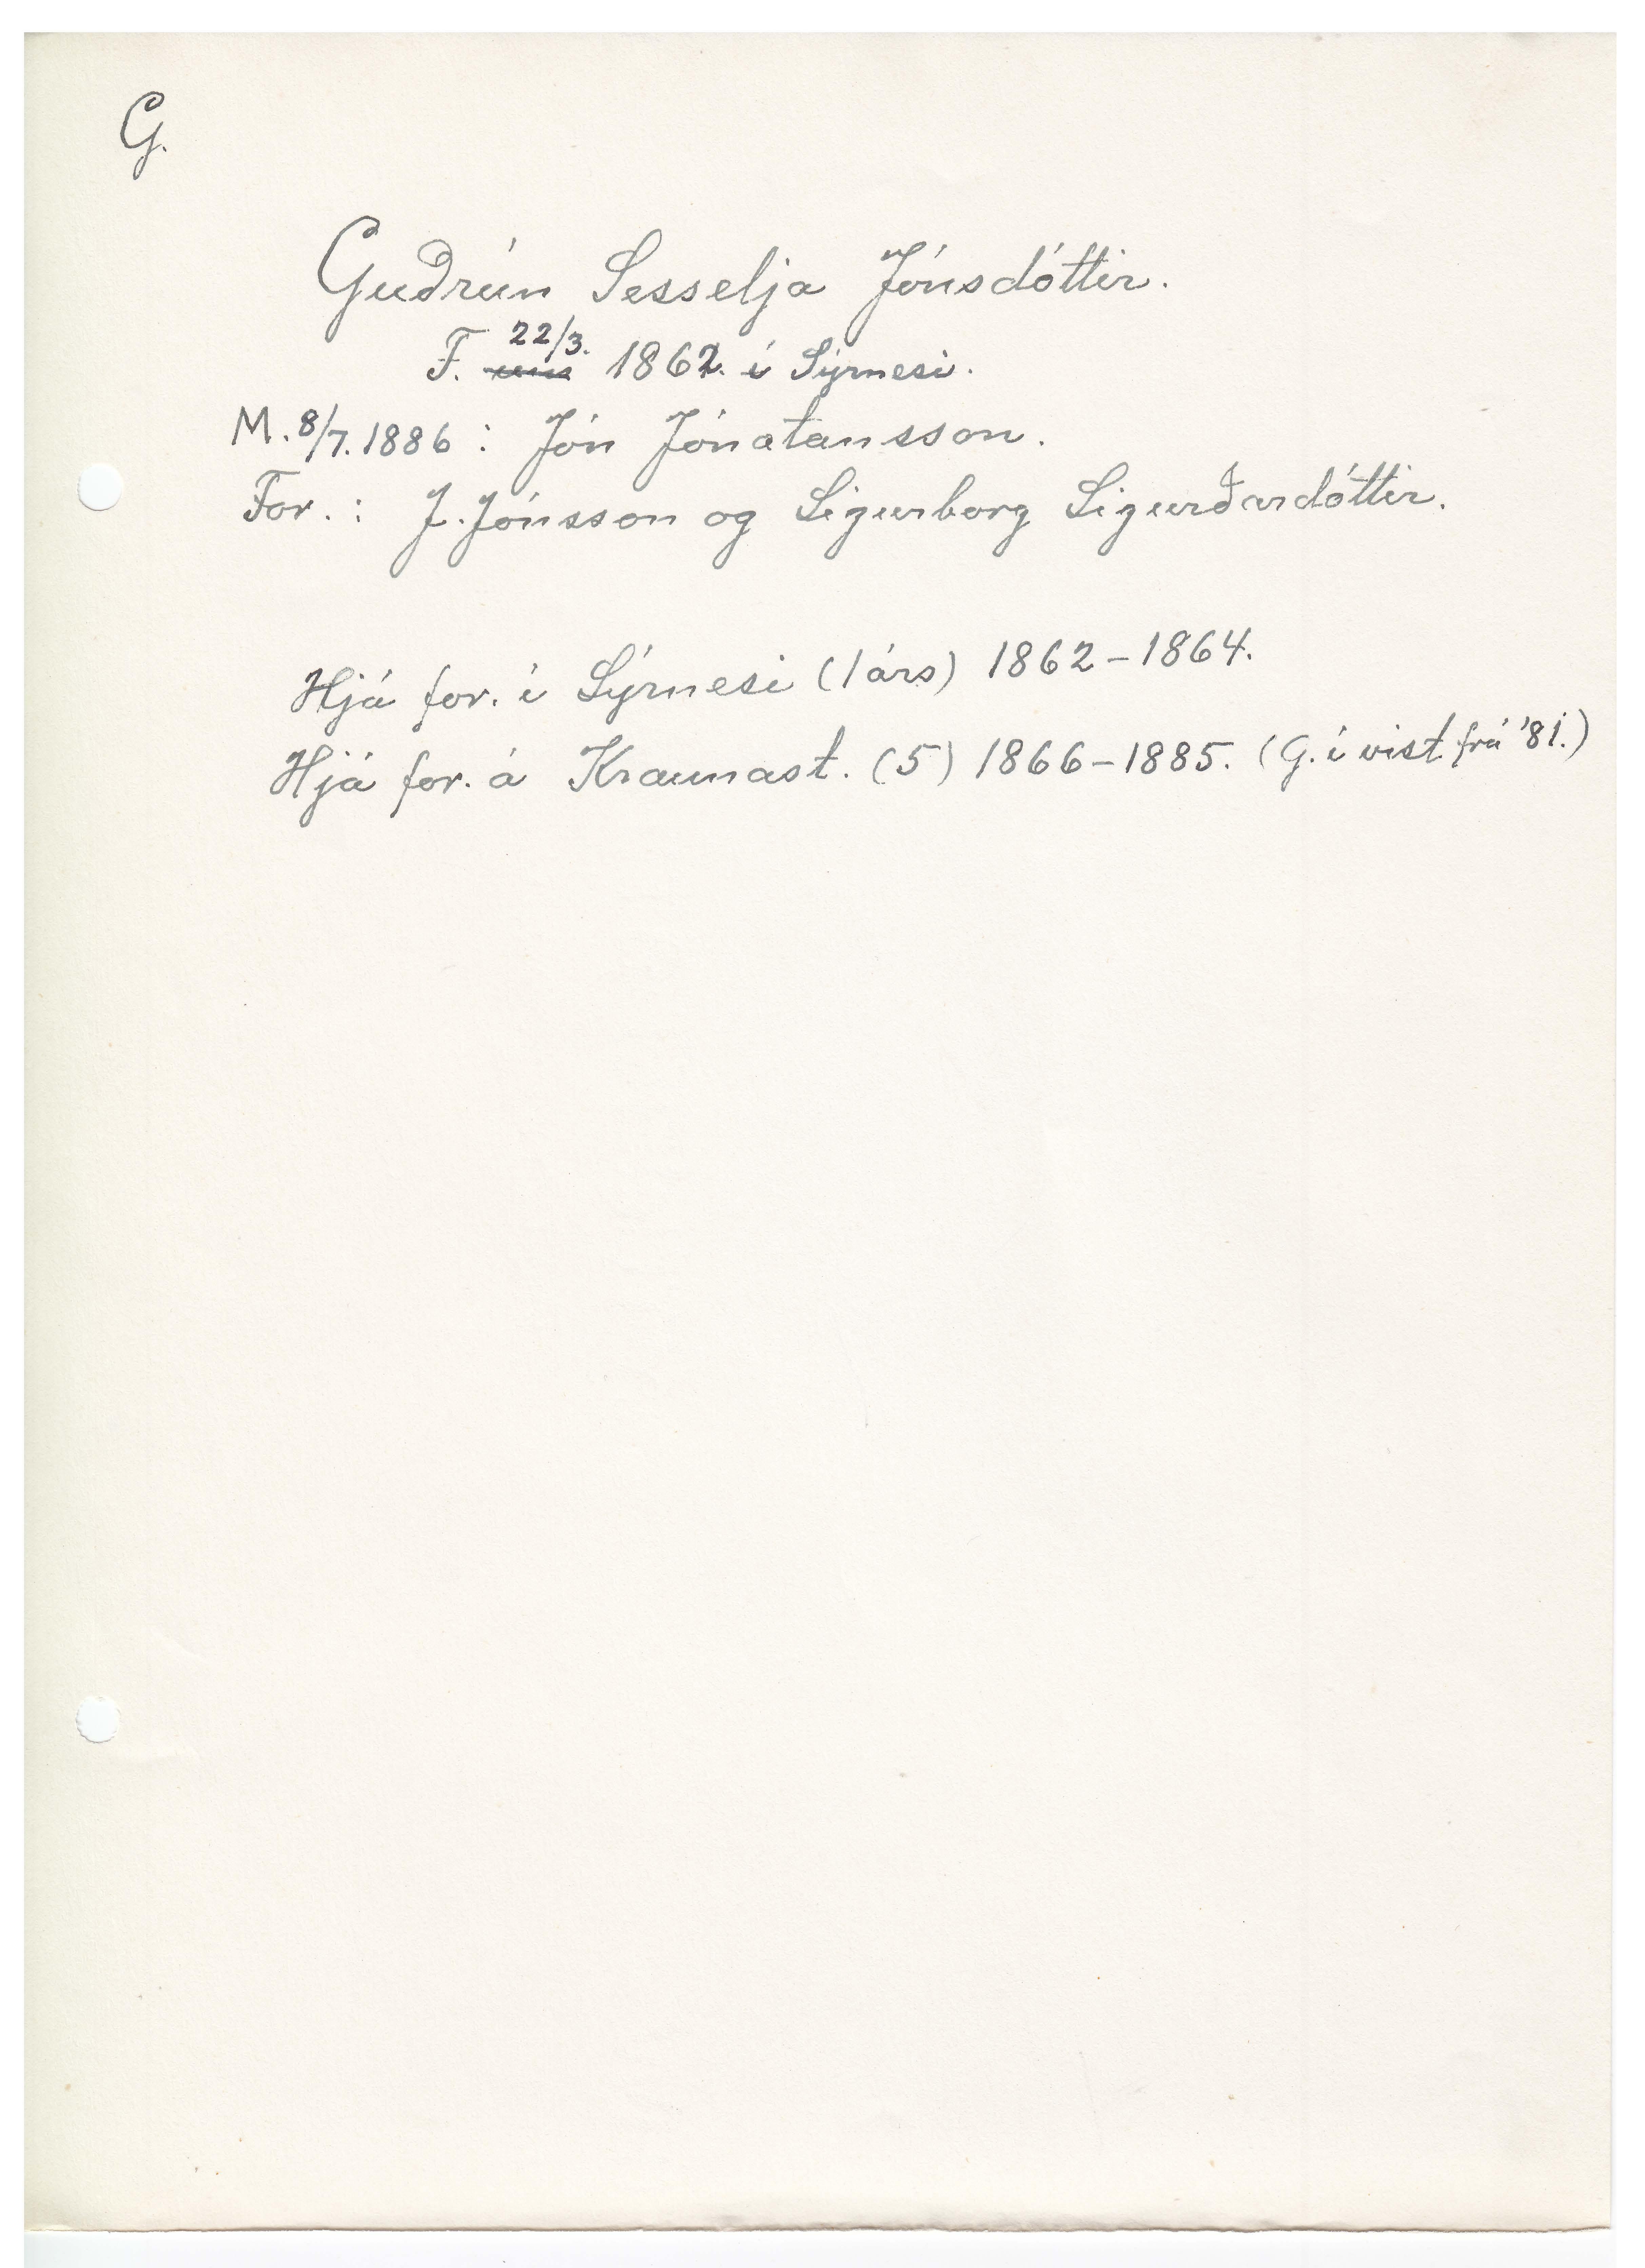 G.
Guðrún Sesselja Jónsdóttir.
F. 22/3. 1862. í Sýrnesi.
M. 8/7. 1886 : Jón Jónatansson.
For. : J. Jónsson og Sigurborg Sigurðardóttir.
Hjá for. í Sýrnesi (1 árs) 1862 – 1864.
Hjá for. á Kraunast. (5) 1866 – 1885. (G. í vist frá '81.)